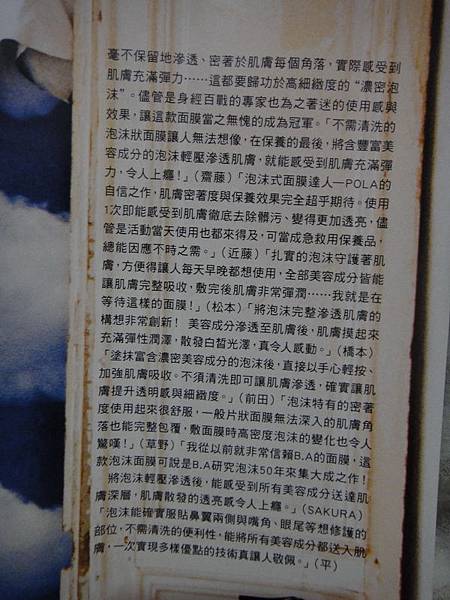 毫不保留地滲透、密著於肌膚每個角落，實際感受到
肌膚充滿彈力……這都要歸功於高細緻度的“濃密泡
沫”。儘管是身經百戰的專家也為之著迷的使用感與
效果，讓這款面膜當之無愧的成為冠軍。「不需清洗的
泡沫狀面膜讓人無法想像，在保養的最後，將含豐富美
容成分的泡沫輕壓滲透肌膚，就能感受到肌膚充滿彈
力，令人上癮！」（齋藤）「泡沫式面膜達人—POLA的
自信之作，肌膚密著度與保養效果完全超乎期待。使用
1次即能感受到肌膚徹底去除髒污、變得更加透亮，儘
管是活動當天使用也都來得及，可當成急救用保養品，
總能因應不時之需。」（近藤）「扎實的泡沫守護著肌
膚，方便得讓人每天早晚都想使用，全部美容成分皆能
讓肌膚完整吸收，敷完後肌膚非常彈潤……我就是在
等待這樣的面膜！」（松本）「將泡沫完整滲透肌膚的
構想非常創新！ 美容成分滲透至肌膚後，肌膚摸起來
充滿彈性潤澤，散發白皙光澤，真令人感動。」（橋本）
「塗抹富含濃密美容成分的泡沫後，直接以手心輕按、
加強肌膚吸收。不須清洗即可讓肌膚滲透，確實讓肌
膚提升透明感與細緻度。」（前田）「泡沫特有的密著
度使用起來很舒服，一般片狀面膜無法深入的肌膚角
落也能完整包覆，敷面膜時高密度泡沫的變化也令人
驚嘆！」（草野）「我從以前就非常信賴B.A的面膜，這
款泡沫面膜可說是B.A研究泡沫50年來集大成之作！
將泡沫輕壓滲透後，能感受到所有美容成分送達肌
膚深層，肌膚散發的透亮感令人上癮。」（SAKURA）
「泡沫能確實服貼鼻翼兩側與嘴角、眼尾等想修護的
部位，不需清洗的便利性，能將所有美容成分都送入肌
膚，一次實現多樣優點的技術真讓人敬佩。」（平）